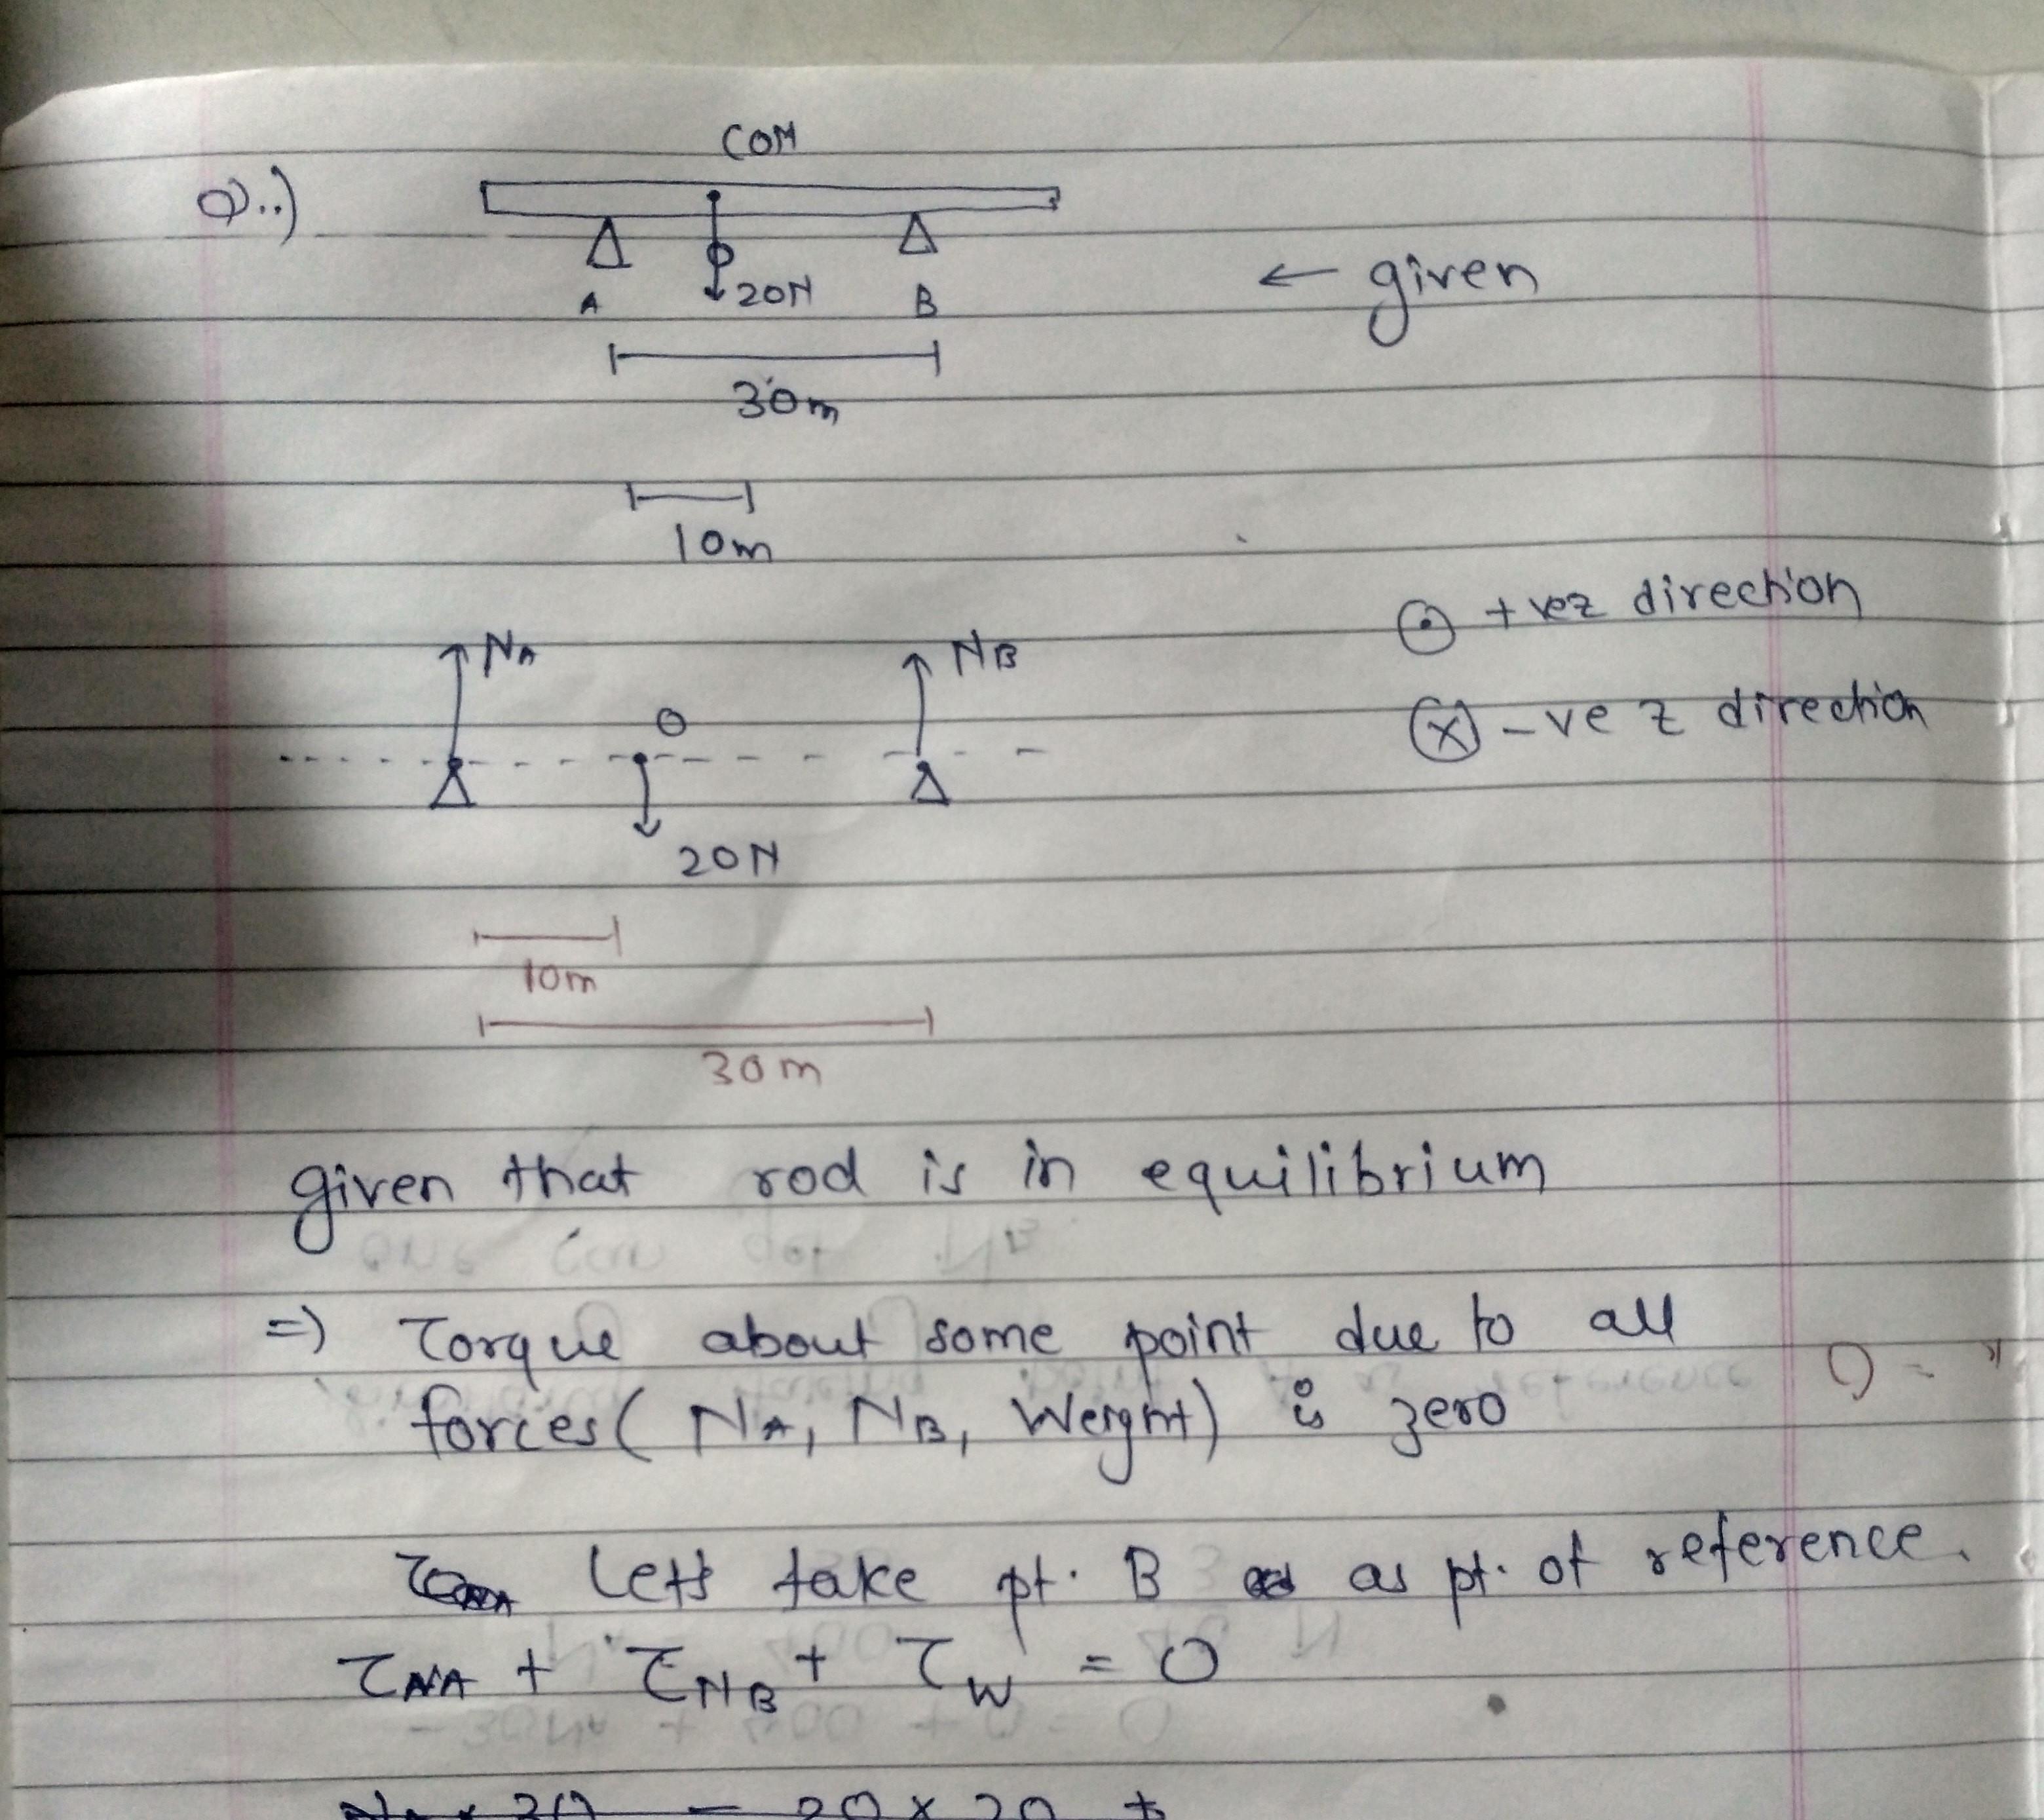 COM
Q..)
20N
A
B
← given
30m
10m
⊙ +ve z direction
NA
NB
O
⊗ -ve z direction
20N
10m
30m
given that rod is in equilibrium
=) Torque about some point due to all
forces (NA, NB, Weight) is zero
Lets take pt. B as pt. of reference.
τNA + τNB + τW = 0